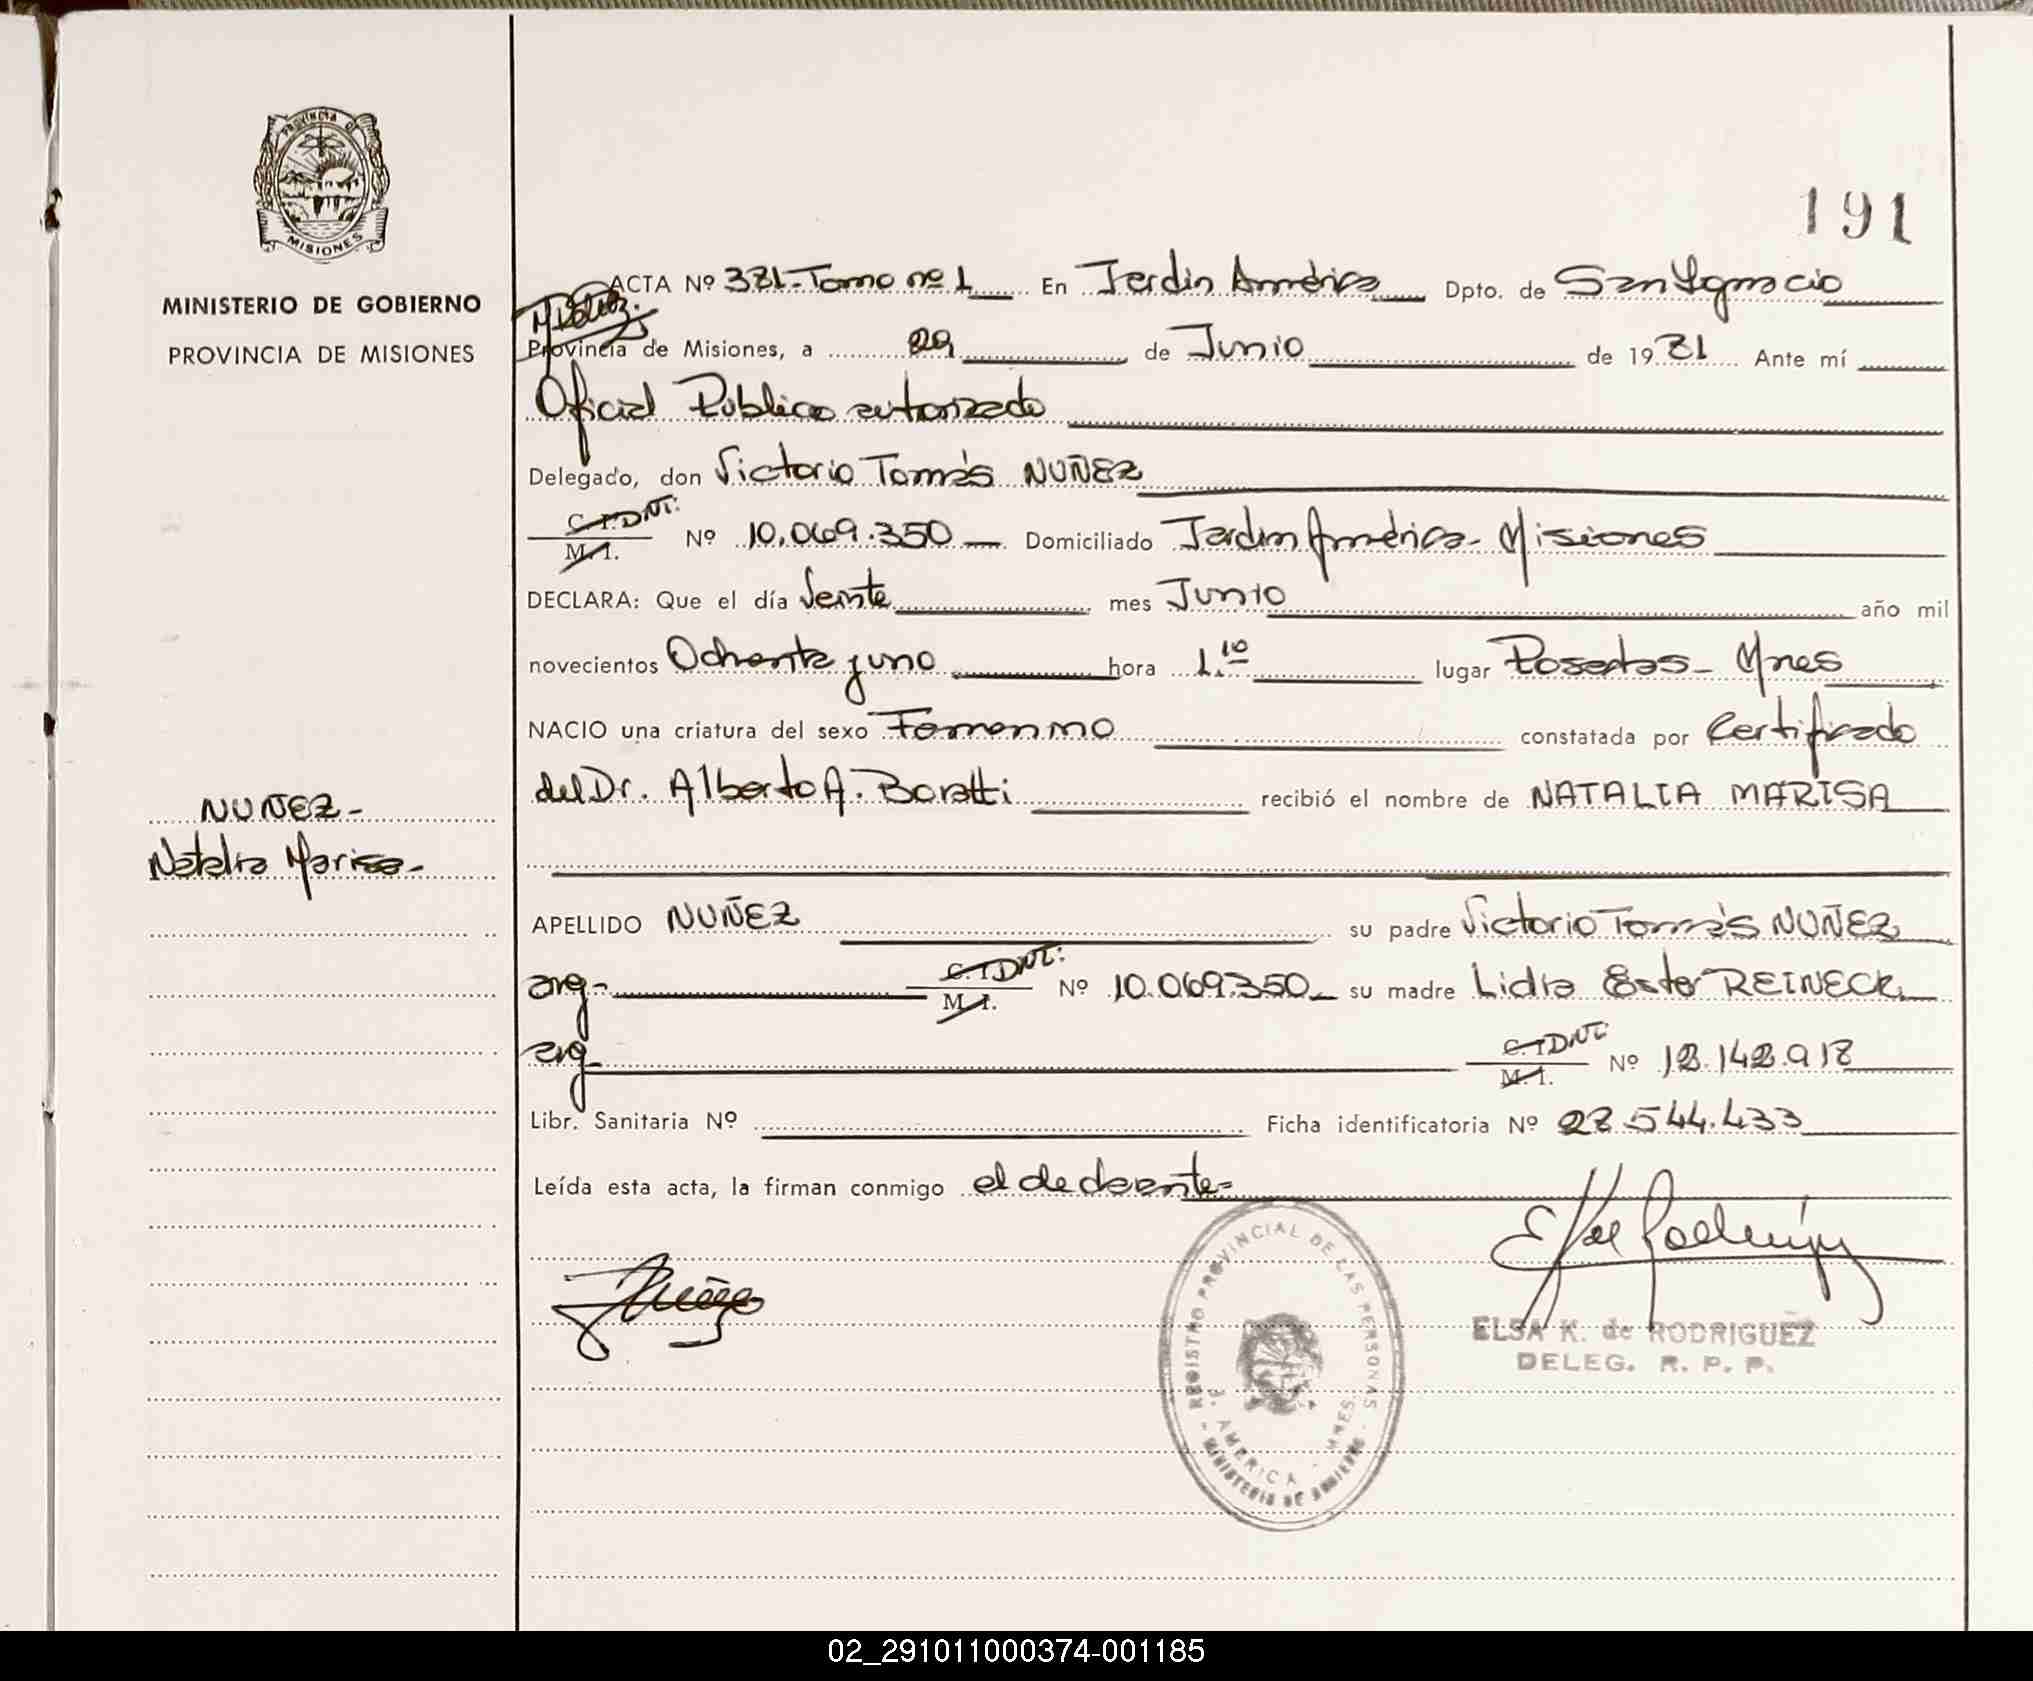 191
PROVINCIA DE
MISIONES
MINISTERIO DE GOBIERNO
PROVINCIA DE MISIONES
ACTA Nº 381-Tomo nº 1 En Jardín América Dpto. de San Ignacio
Provincia de Misiones, a 29 de Junio de 1981 Ante mí
Oficial Publico autorizado
Delegado, don Victorio Tomás NUÑEZ
C. I. DNI:
M. I. Nº 10.069.350 Domiciliado Jardín América - Misiones
DECLARA: Que el día Veinte mes Junio año mil
novecientos Ochenta y uno hora 1.10 lugar Posadas - Mnes
NACIO una criatura del sexo Femenino constatada por Certificado
del Dr. Alberto A. Boratti recibió el nombre de NATALIA MARISA
NUÑEZ-
Natalia Marisa-
APELLIDO NUÑEZ su padre Victorio Tomás NUÑEZ
arg- C. I. DNI: M. I. Nº 10.069.350 su madre Lidia Ester REINECK
arg- C. I. DNI: M. I. Nº 12.142.918
Libr. Sanitaria Nº Ficha identificatoria Nº 28.544.433
Leída esta acta, la firman conmigo el declarante-
REGISTRO PROVINCIAL DE LAS PERSONAS
J. AMERICA - MNES.
MINISTERIO DE GOBIERNO
ELSA K. de RODRIGUEZ
DELEG. R. P. P.
02_291011000374-001185